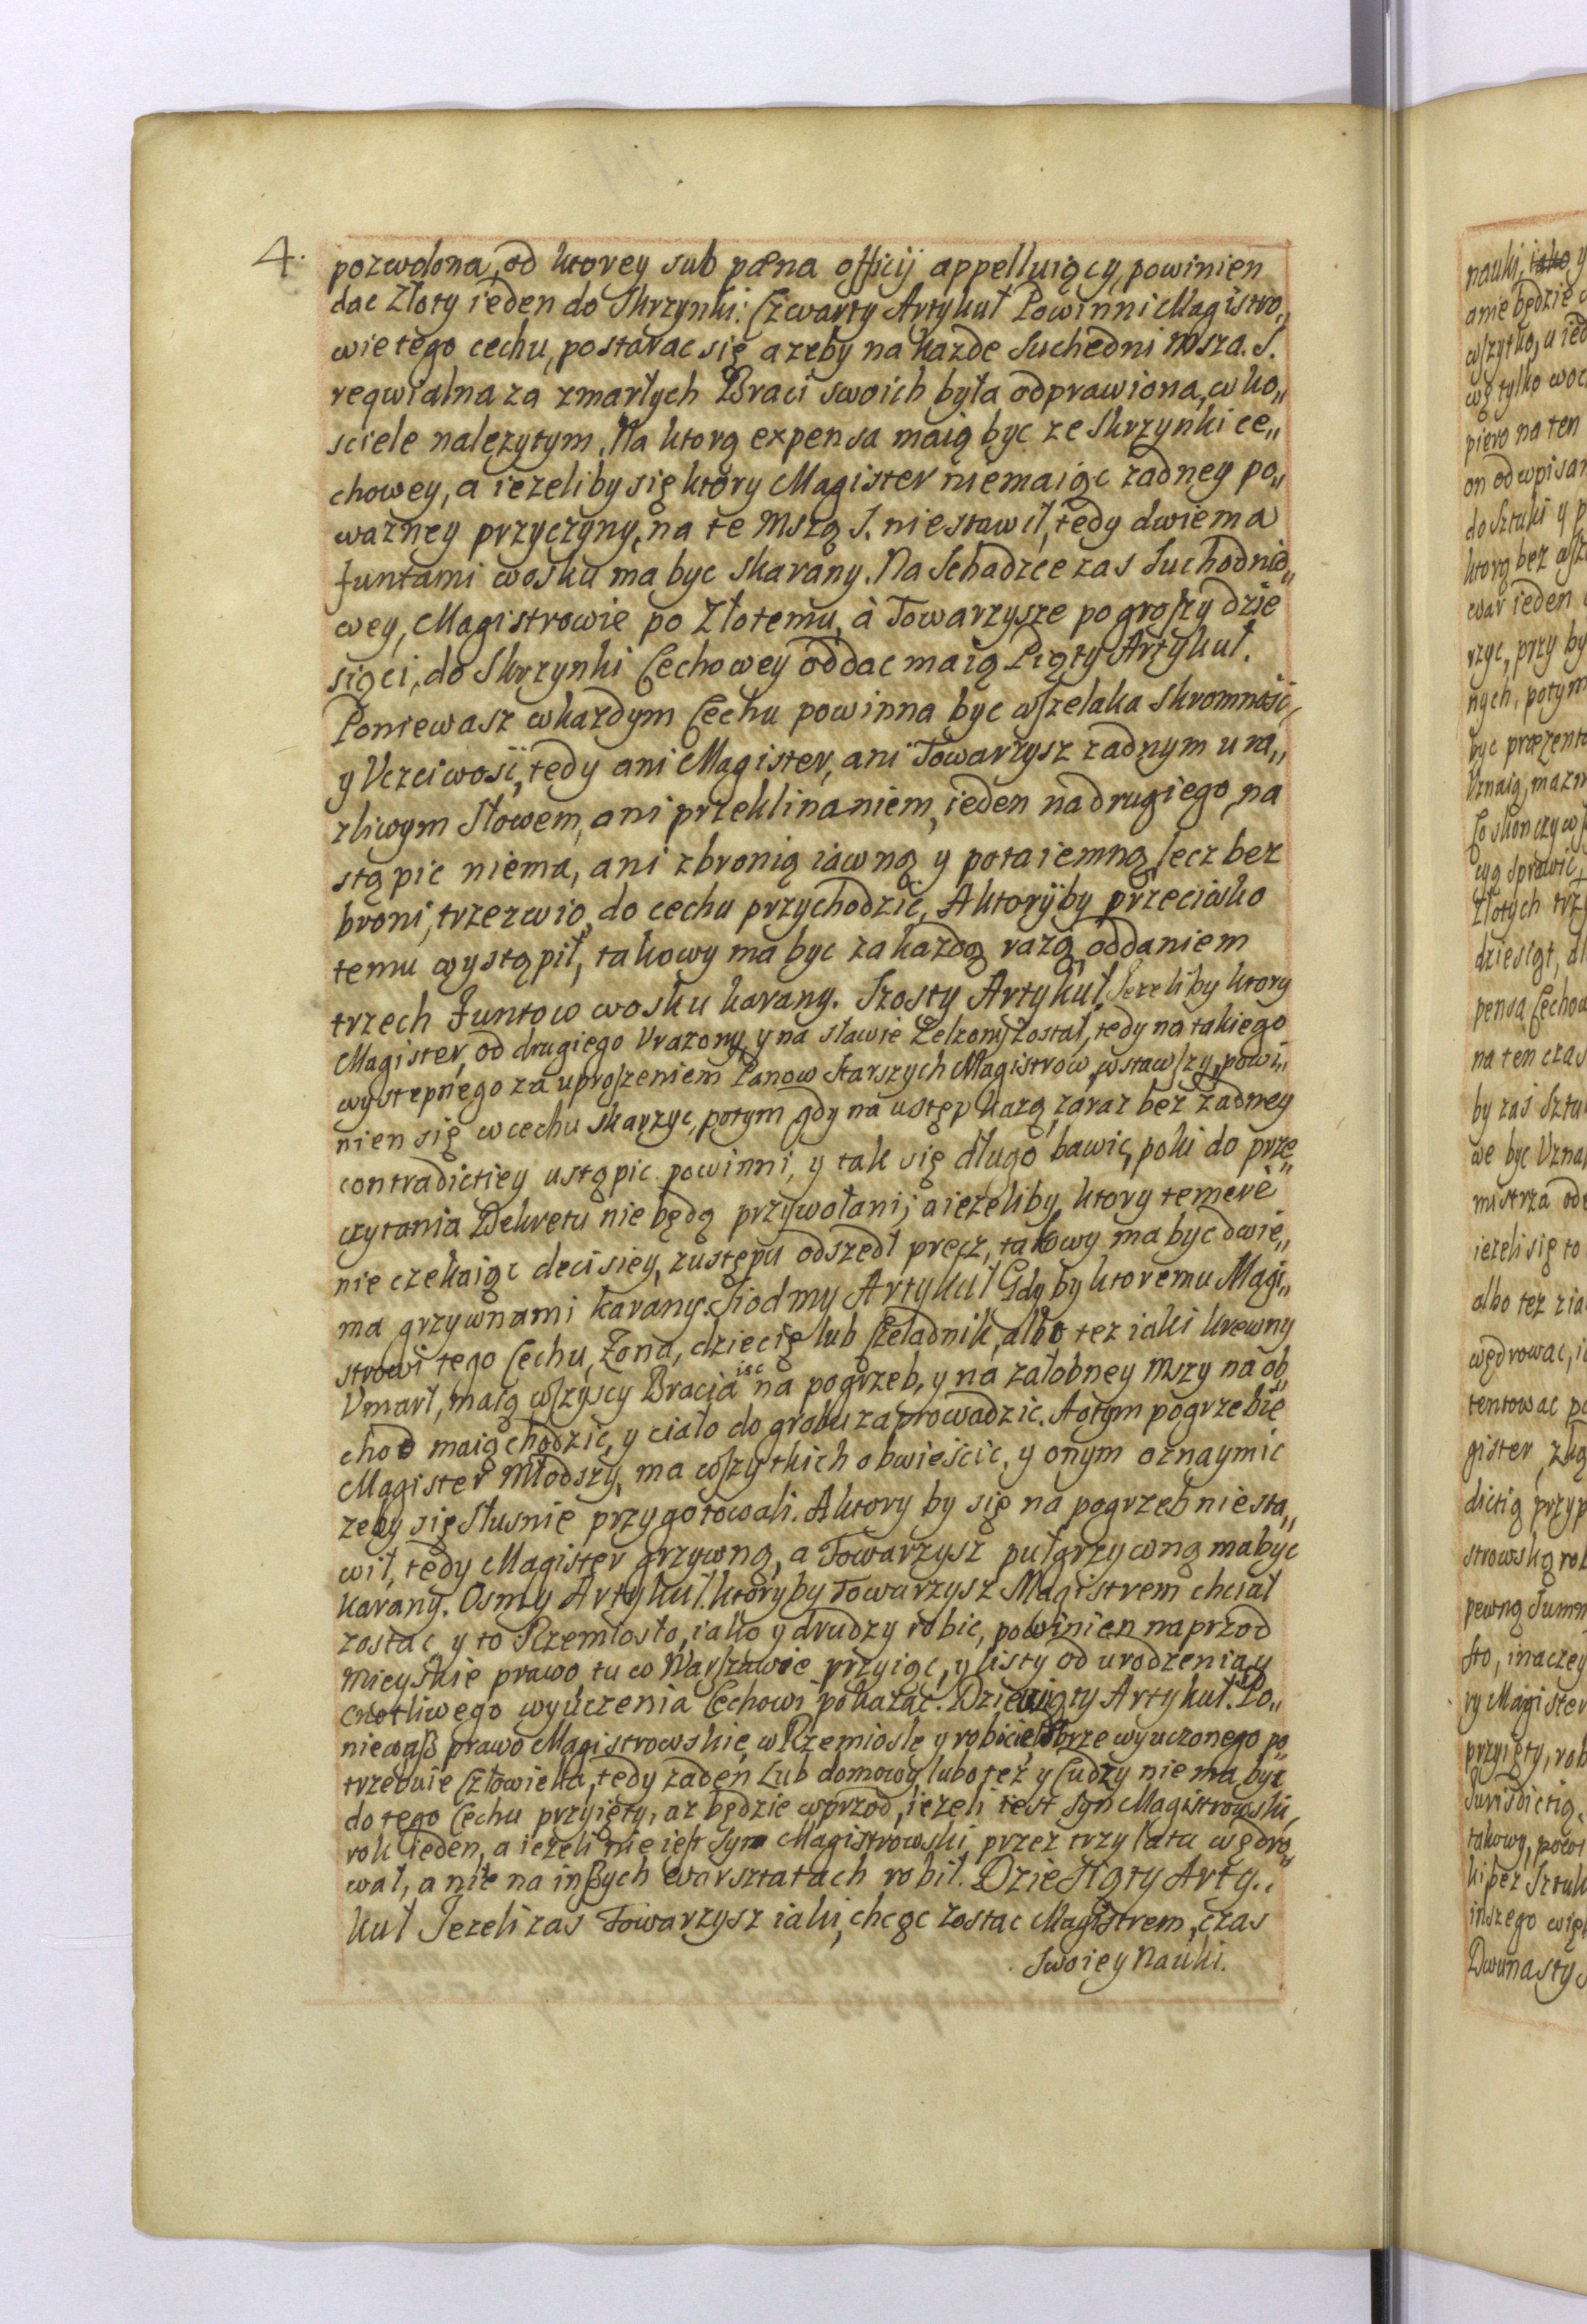 4.
pozwolona, od ktorey sub pæna officij appelluiący, powinien
dac Złoty ieden do Skrzynki: Czwarty Artykuł Powinni Magistro„
wie tego cechu, postarac się azeby na kazde Suchedni Msza. S.
reqwialna za zmarłych Braci swoich była odprawiona, w ko„
sciele nalezytym. Na ktorą expensa maią byc ze Skrzynki ce„
chowey, a iezeliby się ktory Magister niemaiąc zadney po„
wazney przyczyny, na te Mszą S. niestawił, tedy dwiema
funtami wosku ma byc skarany. Na Schadzce zas Suchodnio„
wey, Magistrowie po Złotemu, à Towarzysze po groszy dzie
sięci, do Skrzynki Cechowey oddac maią Piąty Artykuł.
Poniewasz w kazdym Cechu powinna byc wszelaka Skromnosć,
y Uczciwosć, tedy ani Magister, ani Towarzysz zadnym ura„
zliwym Słowem, ani przeklinaniem, ieden na drugiego na
stąpic niema, ani zbronią iawną y potaiemną, lecz bez
broni, trzezwio, do cechu przychodzić, A ktoryby przeciwko
temu wystąpił, takowy ma byc za kazdą razą, oddaniem
trzech Funtow wosku karany. Szosty Artykuł. Iezeliby ktory
Magister, od drugiego Urazony, y na sławie Zelzony został, tedy na takiego
wystepnego za uproszeniem Panow Starszych Magistrow, wstawszy, powi„
nien się w cechu skarzyc, potym gdy na ustęp kazą, zaraz bez zadney
contradictiey ustąpic powinni, y tak się długo bawic, poki do prze„
czytania Dekretu nie będą przywołani; a iezeliby ktory temere
nie czekaiąc decisiey, z ustępu odszedł precz, takowy ma byc dwie„
ma grzywnami karany. Siodmy Artykuł Gdyby ktoremu Magi„
strowi tego Cechu, Zona, dziecię lub Czeladnik, albo tez iaki krewny
Umarł, maią wszyscy Bracia isc na pogrzeb, y na załobney Mszy na ob„
chod maią chodzic, y ciało do grobu zaprowadzic. A o tym pogrzebie
Magister Młodszy, ma wszytkich obwieścic, y onym oznaymic
zeby się słusnie przygotowali. A ktory by się na pogrzeb niesta„
wił, tedy Magister grzywną, a Towarzysz pułgrzywną ma byc
karany. Osmy Artykuł. ktoryby Towarzysz Magistrem chciał
zostac, y to Rzemiosło, iako y drudzy robic, powinien naprzod
Mieyskie prawo tu w Warszawie przyiąc, y listy od urodzenia y
cnotliwego wyuczenia Cechowi pokazac. Dziewiąty Artykuł. Po„
niewasz prawo Magistrowskie, w Rzemiosle y robicie dobrze wyuczonego po„
trzebuie Człowieka, tedy zaden Lub domowy lubo tez y Cudzy nie ma byc
do tego Cechu przyięty, az będzie wprzod, iezeli iest Syn Magistrowski,
rok ieden, a iezeli nie iest Syn Magistrowski, przez trzy lata wędro„
wał, a nie na inszych warsztatach robił. Dziesiąty Arty„
kuł Iezeli zas Towarzysz iaki, chcąc zostac Magistrem, czas
Swoiey Nauki.